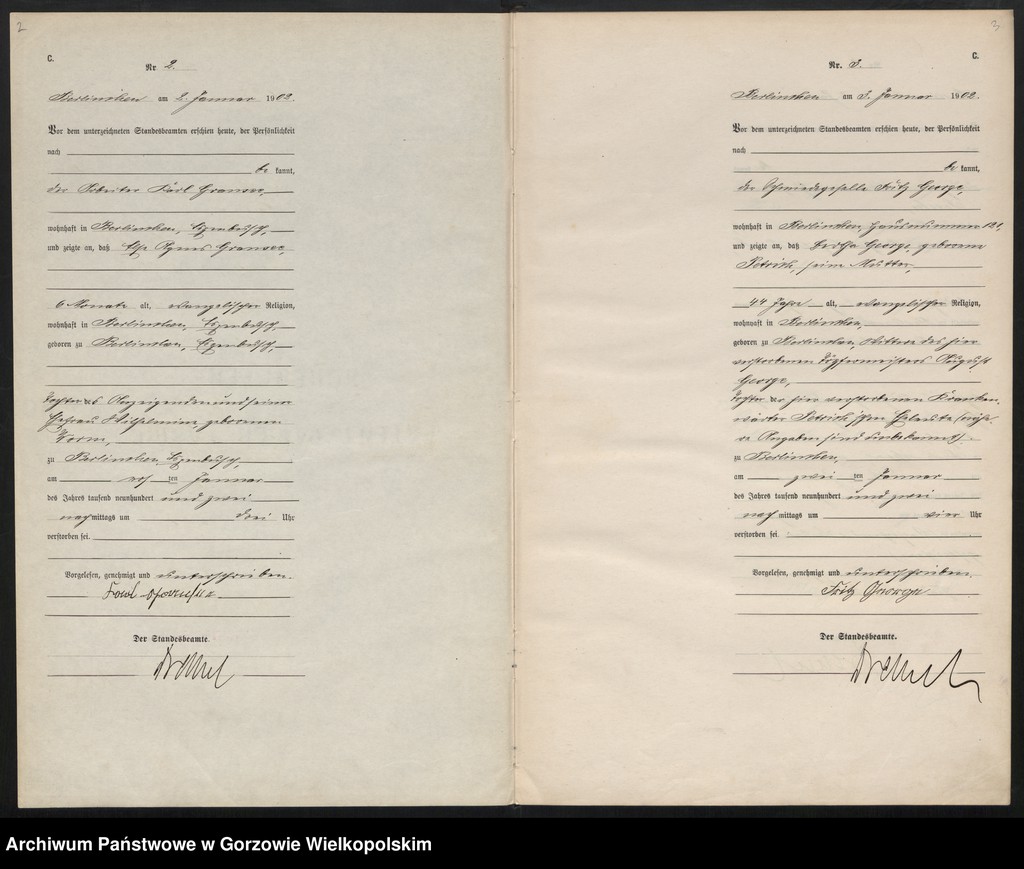 2
C.
Nr 2.
Berlinchen am 2. Januar 1902.
Vor dem unterzeichneten Standesbeamten erschien heute, der Persönlichkeit
nach
be kannt,
der Arbeiter Karl
wohnhaft in Berlinchen,
und zeigte an, daß Else Agnes
6 Monate alt, evangelischer Religion,
wohnhaft in Berlinchen,
geboren zu Berlinchen,
Tochter des Anzeigenden und seiner
Ehefrau Wilhelmine geborenen
zu Berlinchen,
am ten Januar
des Jahres tausend neunhundert und zwei
nach mittags um drei Uhr
verstorben sei.
Vorgelesen, genehmigt und unterschrieben.
Der Standesbeamte.
3
C.
Nr. 3.
Berlinchen am 3. Januar 1902.
Vor dem unterzeichneten Standesbeamten erschien heute, der Persönlichkeit
nach
be kannt,
der Schmiedegeselle Fritz George,
wohnhaft in Berlinchen, Hausnummer
und zeigte an, daß George, geborene
Petrich, seine Mutter,
44 Jahre alt, evangelischer Religion,
wohnhaft in Berlinchen,
geboren zu Berlinchen, Wittwe des hier
verstorbenen Töpfermeisters August
George,
Tochter der hier verstorbenen Kranken
wärter Petrich'schen Eheleute
Angaben sind unbekannt).
zu Berlinchen,
am zwei ten Januar
des Jahres tausend neunhundert und zwei
nach mittags um vier Uhr
verstorben sei.
Vorgelesen, genehmigt und unterschrieben.
Fritz George
Der Standesbeamte.
Archiwum Państwowe w Gorzowie Wielkopolskim